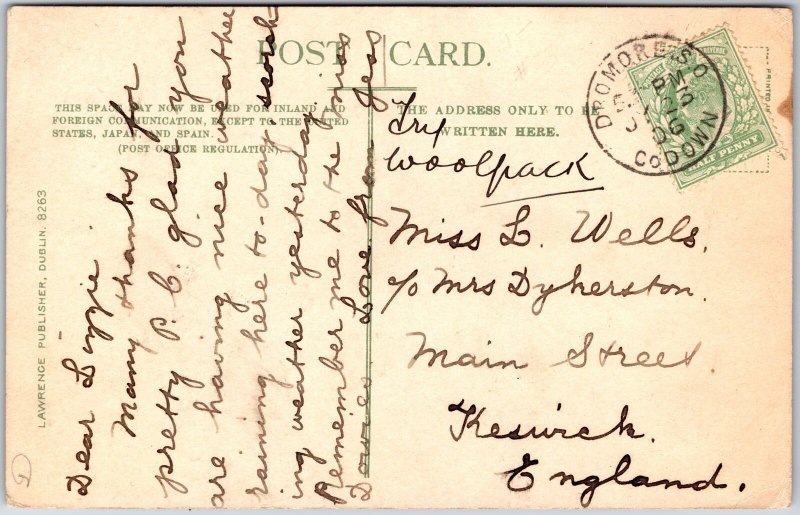 POST CARD.
THIS SPACE MAY NOW BE USED FOR INLAND AND
FOREIGN COMMUNICATION, EXCEPT TO THE UNITED
STATES, JAPAN, AND SPAIN.
(POST OFFICE REGULATION).
THE ADDRESS ONLY TO BE
WRITTEN HERE.
LAWRENCE PUBLISHER, DUBLIN. 8263
Dear Lizzie
Many thanks for
pretty P.C. glad you
are having nice weather
raining here to-day, scorch-
ing weather yesterday.
Remember me to the Miss
Love from Jess
Try
Woolpack
Miss L. Wells,
c/o Mrs Dykerston.
Main Street.
Keswick.
England.
DROMORE S.O
Co DOWN
HALF PENNY